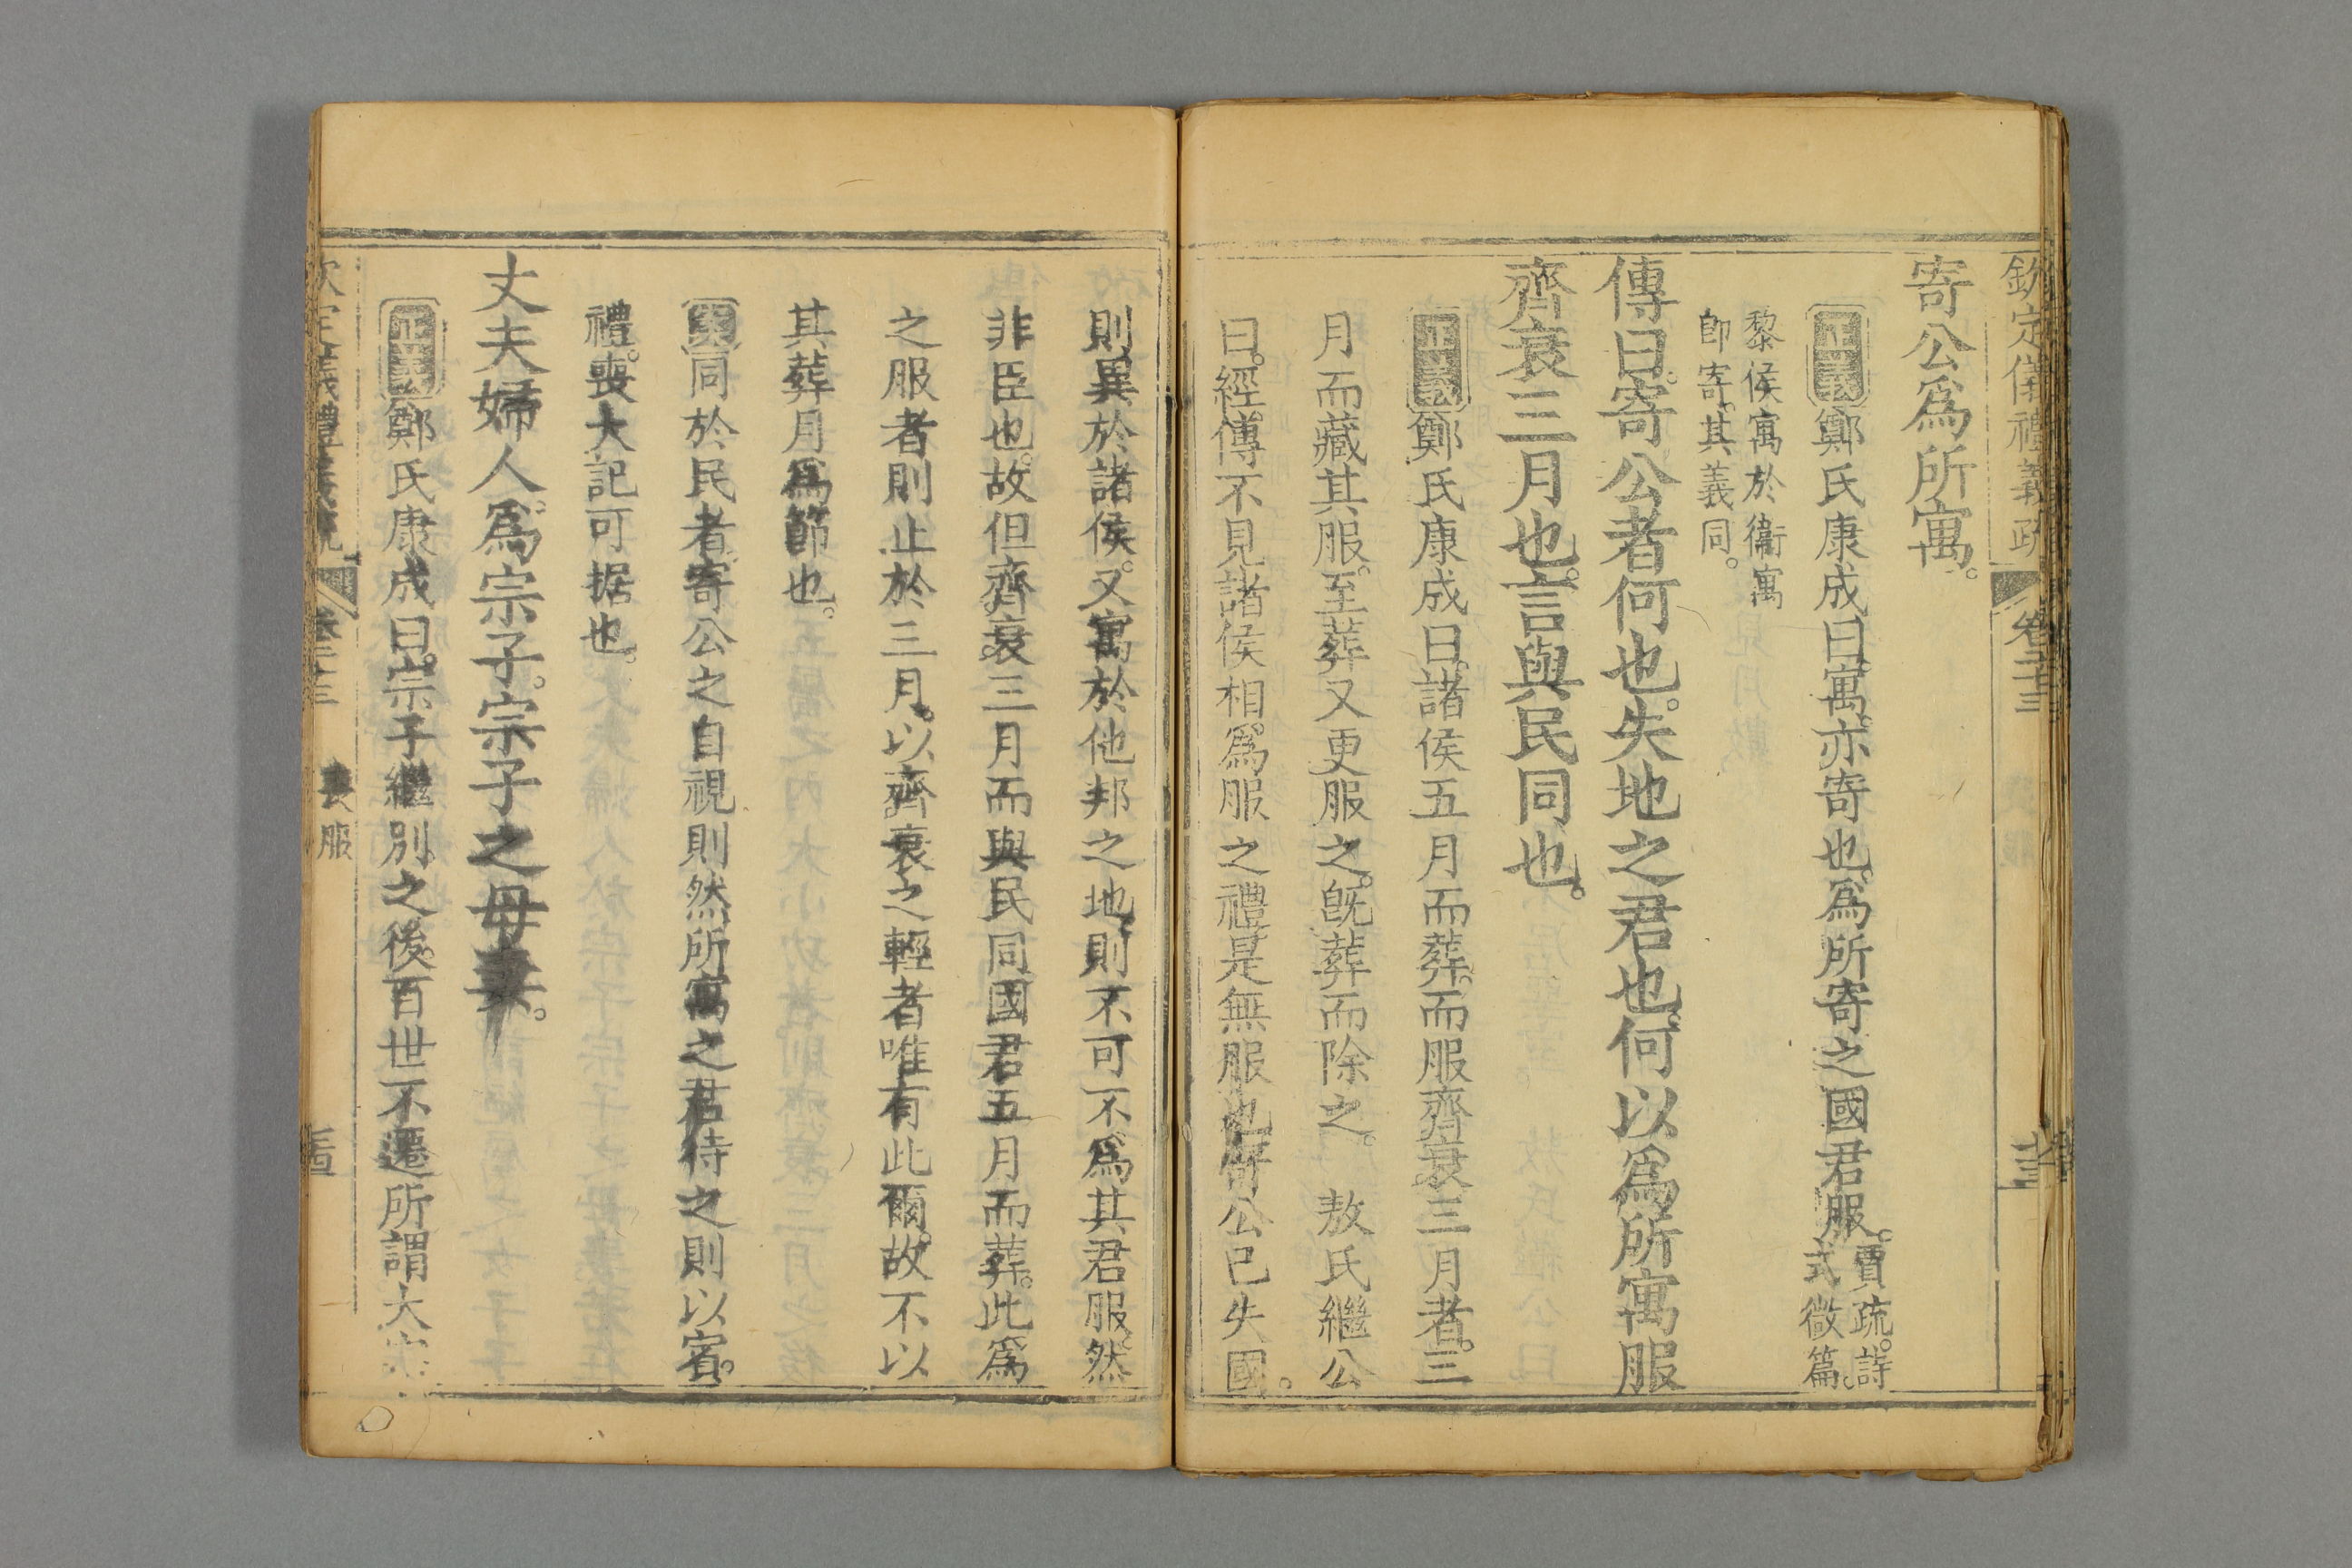 欽定儀禮義疏 卷二十三
寄公爲所寓。
正義鄭氏康成曰。寓。亦寄也。爲所寄之國君服。賈疏。詩
式微篇。
黎侯寓於衞寓
卽寄。其義同。
傳曰。寄公者何也。失地之君也。何以爲所寓服
齊衰三月也。言與民同也。
正義鄭氏康成曰。諸侯五月而葬。而服齊衰三月者。三
月而藏其服。至葬又更服之。旣葬而除之。 敖氏繼公
曰。經傳不見諸侯相爲服之禮是無服也寄公已失國。
則異於諸侯。又寓於他邦之地。則不可不爲其君服。然
非臣也。故但齊衰三月而與民同國君五月而葬。此爲
之服者則止於三月。以齊衰之輕者唯有此爾。故不以
其葬月爲節也。
案同於民者寄公之自視則然所寓之君待之則以賓。
禮。喪大記可据也。
丈夫婦人。爲宗子。宗子之母妻。
正義鄭氏康成曰。宗子繼別之後。百世不遷所謂大宗
欽定儀禮義疏 卷二十三 喪服